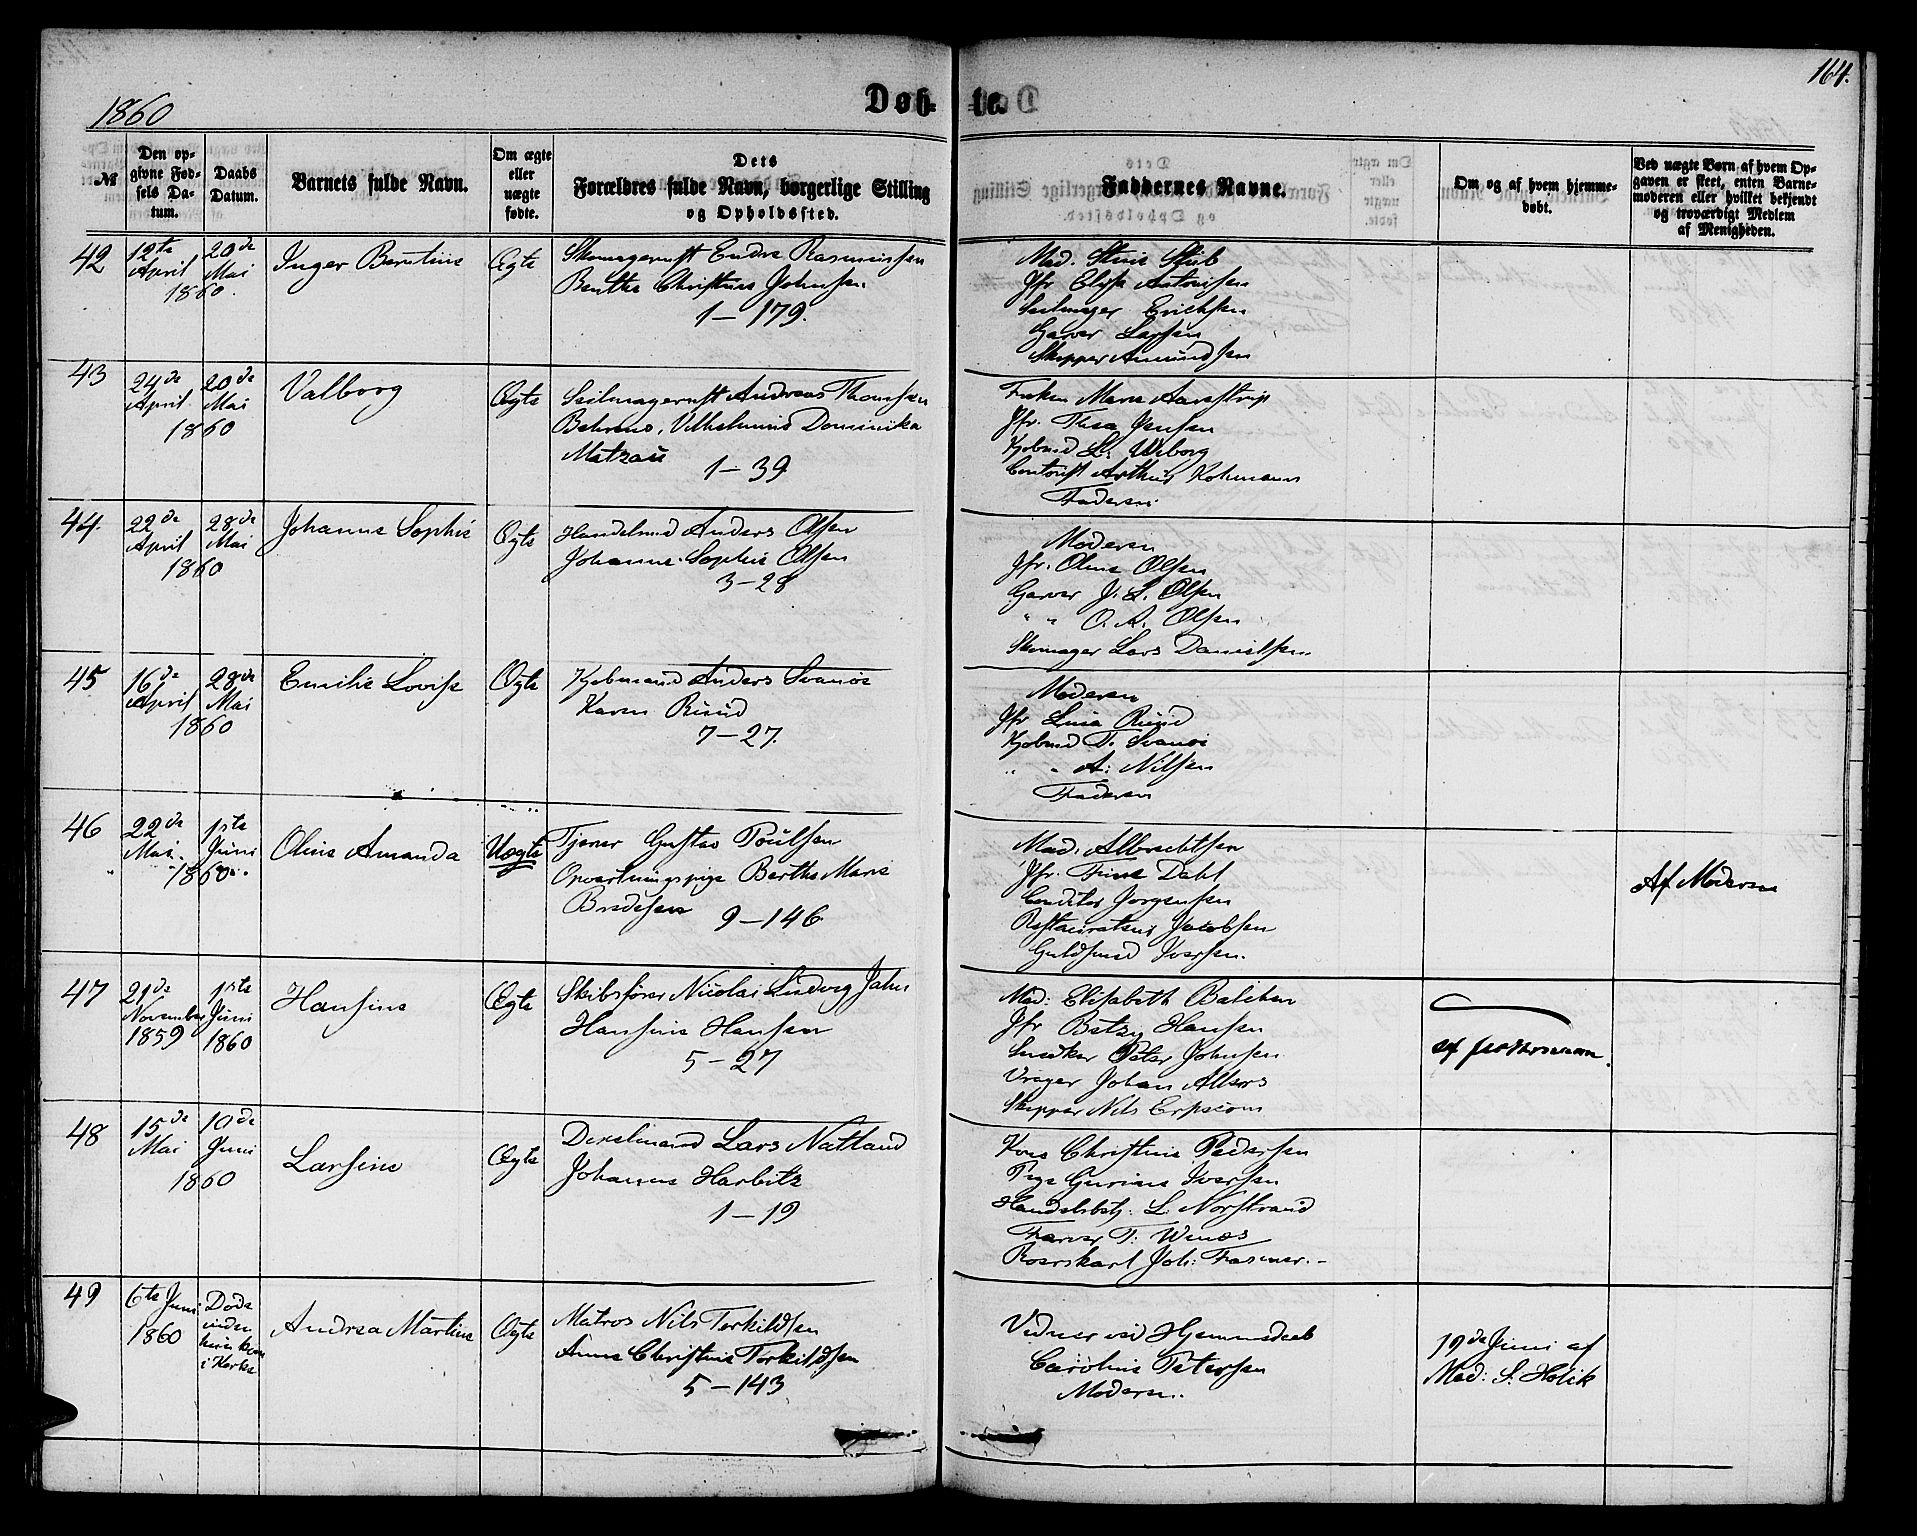 164.
1860
Døb- te.
№
Den op-
givne Fød-
sels Da-
tum.
Daabs
Datum.
Barnets fulde Navn.
Om ægte
eller
uægte
fødte.
Dets
Forældres fulde Navn, borgerlige Stilling
og Opholdssted.
Faddernes Navne.
Om og af hvem hjemme-
døbt.
Ved uægte Børn af hvem Op-
gaven er skeet, enten Barne-
moderen eller hvilket bekjendt
og troværdigt Medlem
af Menigheden.
42
12te
April
1860.
20de
Mai
Inger Berntine
Ægte
Skomagersvst Endre Rasmussen
Benthe Christine Johnsen
1-179.
Mad. Stine Stub
Jfr Elise Antonisen
Seilmager Erichsen
Garver Larsen
Skipper Amundsen
43
24de
April
1860
20de
Mai
Valborg
Ægte
Seilmagersvst Andreas Thomsen
Behrens, Vilhelmine Dominika
Matzau
1-39
Frøken Marie Aarestrup
Jfr. Thea Jensen
Kjøbmd L. Wiborg
Contorist Arthur Kohmann
Faderen.
44.
22de
April
1860
28de
Mai
Johanne Sophie
Ægte
Handelsmd Anders Olsen
Johanne Sophie Olsen
3-28
Moderen
Jfr. Oline Olsen
Garver J. L. Olsen
" " O. A. Olsen
Skomager Lars Danielsen
45
16de
April
1860
28de
Mai
Emilie Lovise
Ægte
Kjøbmand Anders Svanøe
Karen Ruud
7-27.
Moderen
Jfr Luisa Ruud
Kjøbmd T. Svanøe
" " A: Nilsen
Faderen
46
22de
Mai.
1860.
1ste
Juni
Oline Amanda
Uægte
Tjener Gustav Poulsen
Opvartningspige Berthe Marie
Bredesen
9-146
Mad. Albrechtsen
Jfr. Trine Dahl
Conditor Jørgensen
Restauratør Jacobsen
Guldsmed Iversen.
Af Moderen
47
21de
November
1859
1ste
Juni
1860
Hansine
Ægte
Skibsfører Nicolai Ludvig Jahn
Hansine Hansen
5-27
Mad: Elisabeth Balchen
Jfr Betzy Hansen
Snedker Peter Johnsen
Vrager Johan Albers
Skipper Nils
48
15de
Mai
1860
10de
Juni
Larsine
Ægte
Lars Natland
Johanne Harbitz
1-19
Kone Christine Pedersen
Pige Gurine Iversen
Handelsbetj: L. Norstrand
Farver T. Winæs
Roerskarl Joh: Fasmer.
49
6te Juni
1860
Døde
inden
i Kirke
Andrea Martine
Ægte
Matros Nils Torkildsen
Anne Christine Torkildsen
5-143
Vidner ved Hjemmedaab
Caroline Petersen
Moderen.
19de Juni af
Mad: S. Holik